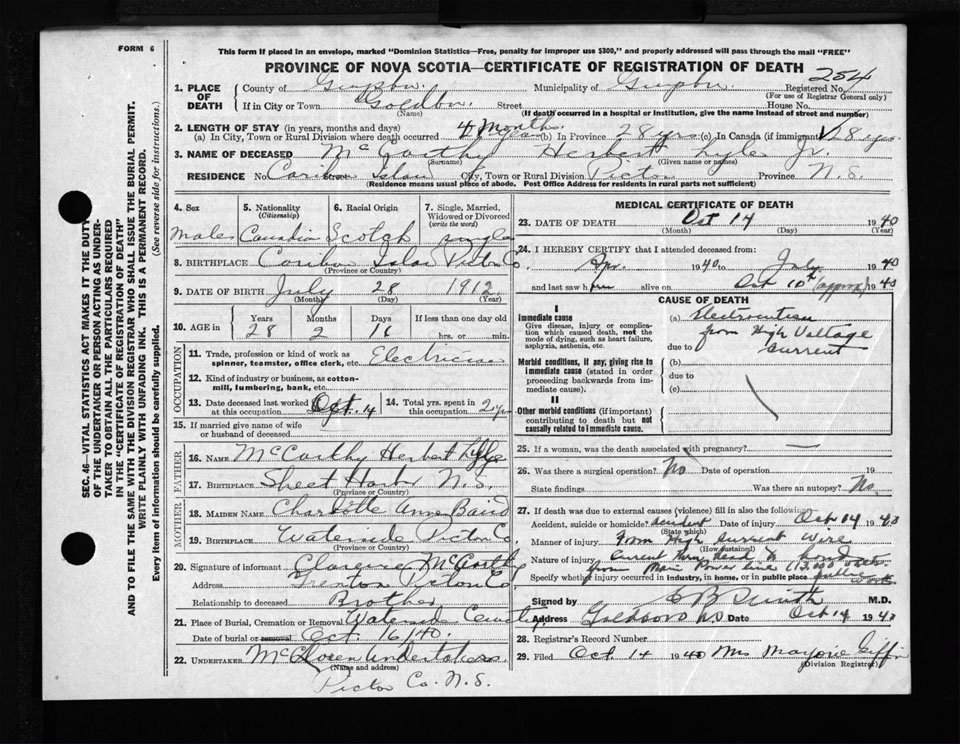 FORM 6
This form if placed in an envelope, marked "Dominion Statistics—Free, penalty for improper use $300," and properly addressed will pass through the mail "FREE"
PROVINCE OF NOVA SCOTIA—CERTIFICATE OF REGISTRATION OF DEATH
254
1. PLACE OF DEATH
County of Guysboro Municipality of Guysboro Registered No.
(For use of Registrar General only)
If in City or Town Goldboro Street House No.
(Name) (If death occurred in a hospital or institution, give the name instead of street and number)
2. LENGTH OF STAY (in years, months and days)
(a) In City, Town or Rural Division where death occurred 4 months (b) In Province 28 yrs (c) In Canada (if immigrant) 28 yrs.
3. NAME OF DECEASED McCarthy Herbert Lyle Jr.
(Surname) (Given name or names)
RESIDENCE No. Caribou Island Street City, Town or Rural Division Pictou Province N.S.
(Residence means usual place of abode. Post Office Address for residents in rural parts not sufficient)
4. Sex 5. Nationality (Citizenship) 6. Racial Origin 7. Single, Married, Widowed or Divorced (write the word)
Male Canadian Scotch single
8. BIRTHPLACE Caribou Island Pictou Co.
(Province or Country)
9. DATE OF BIRTH July 28 1912
(Month) (Day) (Year)
10. AGE in Years Months Days If less than one day old
28 2 16 hrs. or min.
OCCUPATION
11. Trade, profession or kind of work as spinner, teamster, office clerk, etc. Electrician
12. Kind of industry or business, as cotton-mill, lumbering, bank, etc.
13. Date deceased last worked at this occupation Oct. 14
14. Total yrs. spent in this occupation 2 yrs
15. If married give name of wife or husband of deceased
FATHER
16. NAME McCarthy Herbert Lyle
17. BIRTHPLACE Sheet Harbor N.S.
(Province or Country)
MOTHER
18. MAIDEN NAME Charlotte Anne Baird
19. BIRTHPLACE Waterside Pictou Co.
(Province or Country)
20. Signature of informant Clarence McCarthy
Address Trenton Pictou Co.
Relationship to deceased Brother
21. Place of Burial, Cremation or Removal Waterside Cemetery
Date of burial or removal Oct 16/40.
22. UNDERTAKER McLaren Undertakers
(Name and address)
Pictou Co. N.S.
MEDICAL CERTIFICATE OF DEATH
23. DATE OF DEATH Oct 14 1940
(Month) (Day) (Year)
24. I HEREBY CERTIFY that I attended deceased from:
Apr. 1940 to July 1940
and last saw h alive on Oct 10th (approx) 1940
CAUSE OF DEATH
I
Immediate cause
Give disease, injury or complication which caused death, not the mode of dying, such as heart failure, asphyxia, asthenia, etc.
(a) Electrocution
from High Voltage
due to current
Morbid conditions, if any, giving rise to immediate cause (stated in order proceeding backwards from immediate cause).
(b)
due to
(c)
II
Other morbid conditions (if important) contributing to death but not causally related to immediate cause.
25. If a woman, was the death associated with pregnancy?
26. Was there a surgical operation? No Date of operation 19
State findings Was there an autopsy? No
27. If death was due to external causes (violence) fill in also the following:
Accident, suicide or homicide? accident Date of injury Oct 14 1940
(State which)
Manner of injury From High current wire
(How sustained)
Nature of injury Current thru head to
from Main Power line
Specify whether injury occurred in industry, in home, or in public place
Signed by C B Smith M.D.
Address Goldboro N.S. Date Oct 14 1940
28. Registrar's Record Number
29. Filed Oct 14 1940 Mrs Marjorie Giffin
(Division Registrar)
SEC. 46—VITAL STATISTICS ACT MAKES IT THE DUTY
OF THE UNDERTAKER OR PERSON ACTING AS UNDER-
TAKER TO OBTAIN ALL THE PARTICULARS REQUIRED
IN THE "CERTIFICATE OF REGISTRATION OF DEATH"
AND TO FILE THE SAME WITH THE DIVISION REGISTRAR WHO SHALL ISSUE THE BURIAL PERMIT.
WRITE PLAINLY WITH UNFADING INK. THIS IS A PERMANENT RECORD.
Every item of information should be carefully supplied. (See reverse side for instructions.)